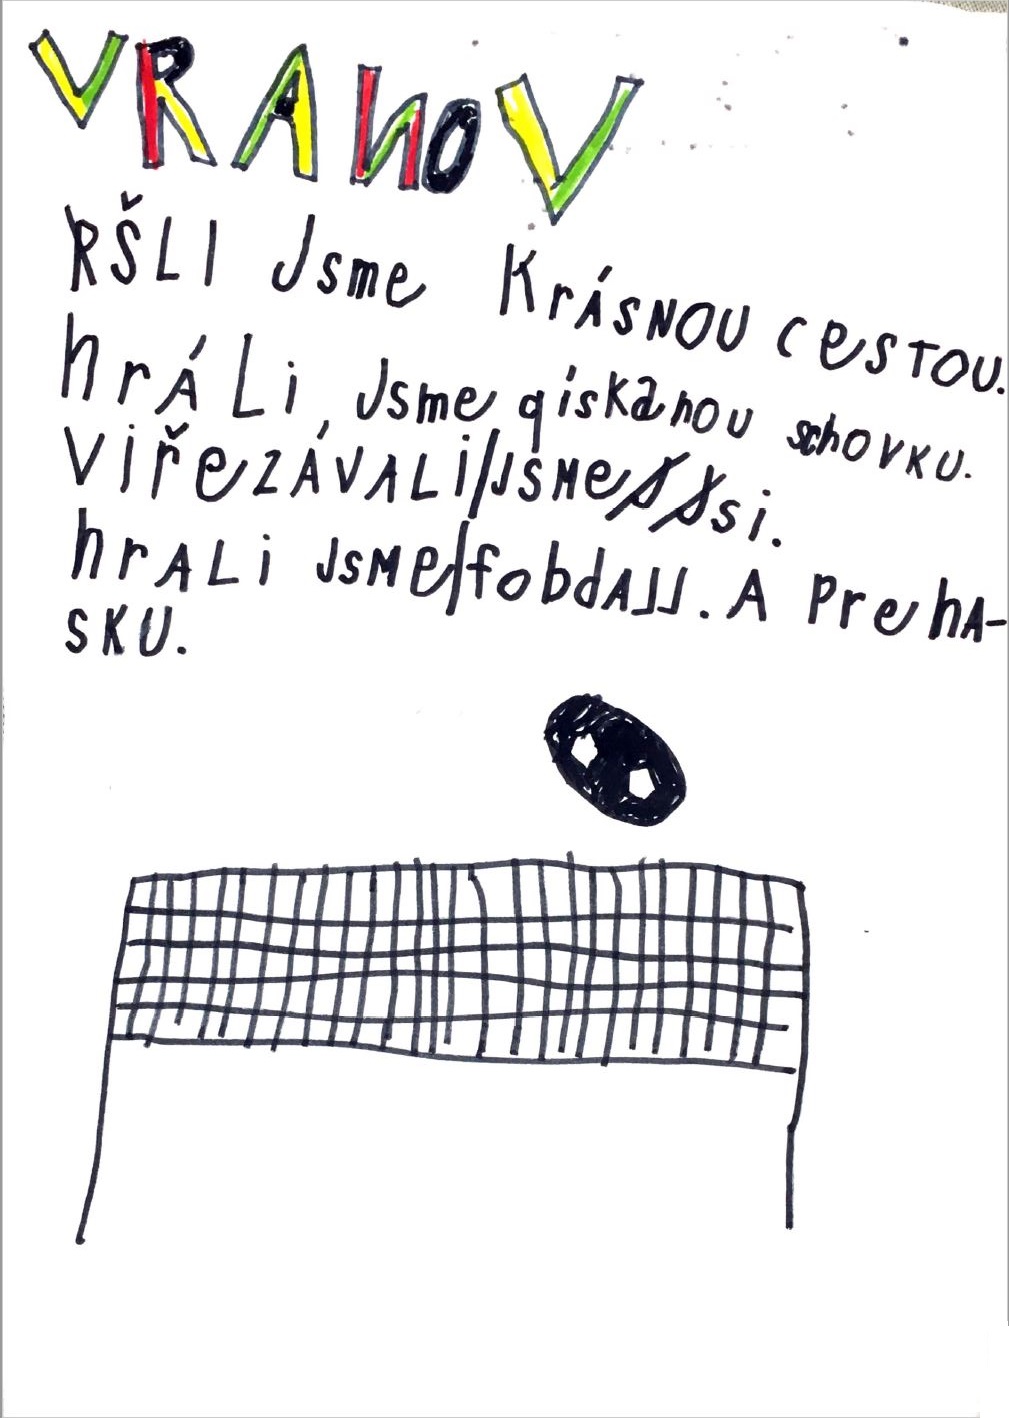 VRANOV
RŠLI Jsme KrÁSNOU cesTOU.
hrÁLi Jsme qískanou schovku.
ViřeZÁVALi/JSMe si.
hrALi JSMe/fobdAJJ. A PrehA-
SKU.